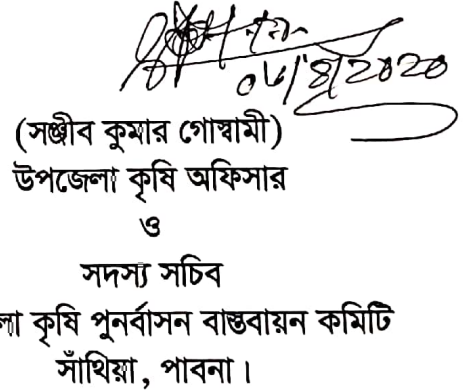 (সঞ্জীব কুমার গোস্বামী)
উপজেলা কৃষি অফিসার
ও
সদস্য সচিব
লা কৃষি পুনর্বাসন বাস্তবায়ন কমিটি
সাঁথিয়া, পাবনা।